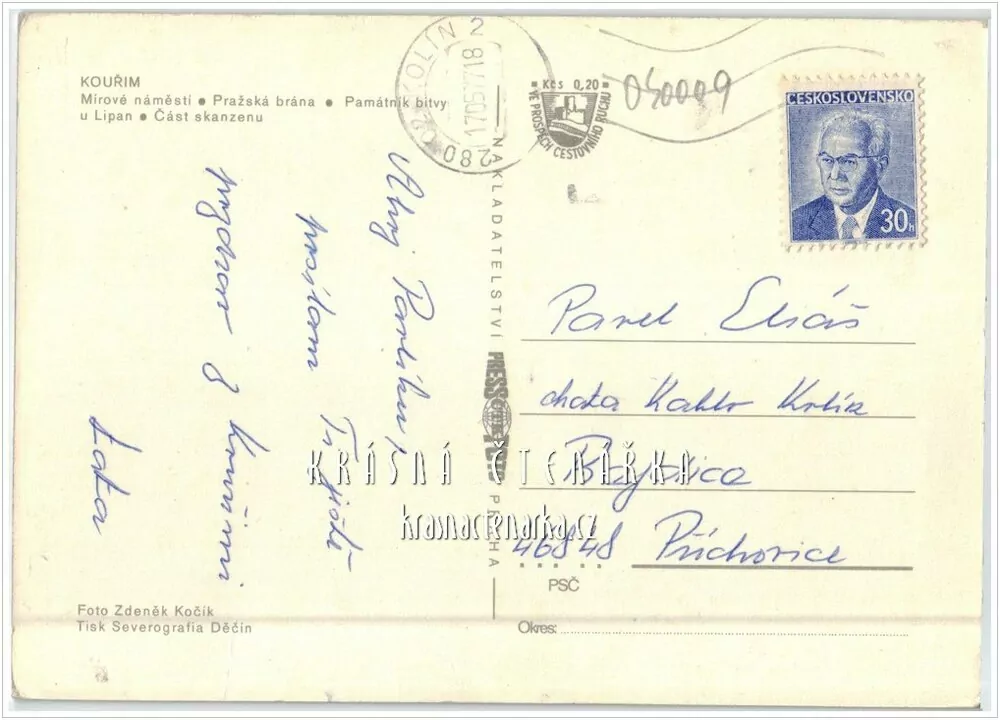 KOUŘIM
Mírové náměstí ● Pražská brána ● Památník bitvy
u Lipan ● Část skanzenu
Ahoj Pavlíku,
posílám Ti ještě
pozdrav z Kouřimi
Láťa
Foto Zdeněk Kočík
Tisk Severografia Děčín
NAKLADATELSTVÍ PRESSFOTO PRAHA
280 02 KOLÍN 2
Kčs 0,20
VE PROSPĚCH CESTOVNÍHO RUCHU
040009
ČESKOSLOVENSKO
30h
Pavel Eliáš
chata Kablo Kolín
468 48 Příchovice
PSČ
Okres:
KRÁSNÁ ČTENÁŘKA
krasnactenarka.cz